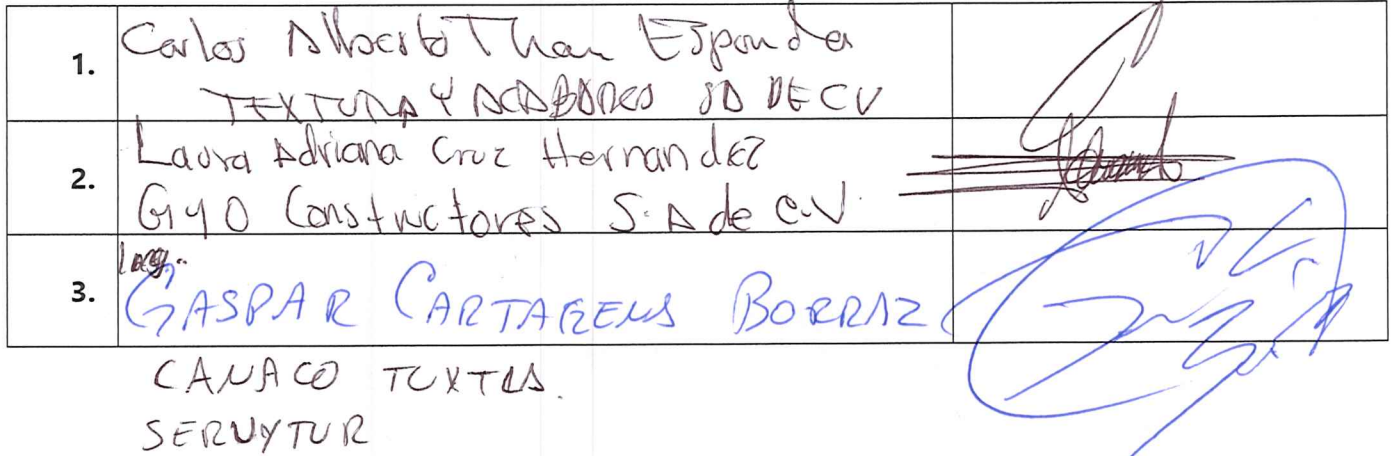 1. Carlos Alberto Than Esponda
TEXTURA Y ACABADOS SA DE CV
2. Laura Adriana Cruz Hernandez
GYO Constructores S.A de C.V.
3. GASPAR CARTAGENA BORRAZ
CANACO TUXTLA
SERVYTUR